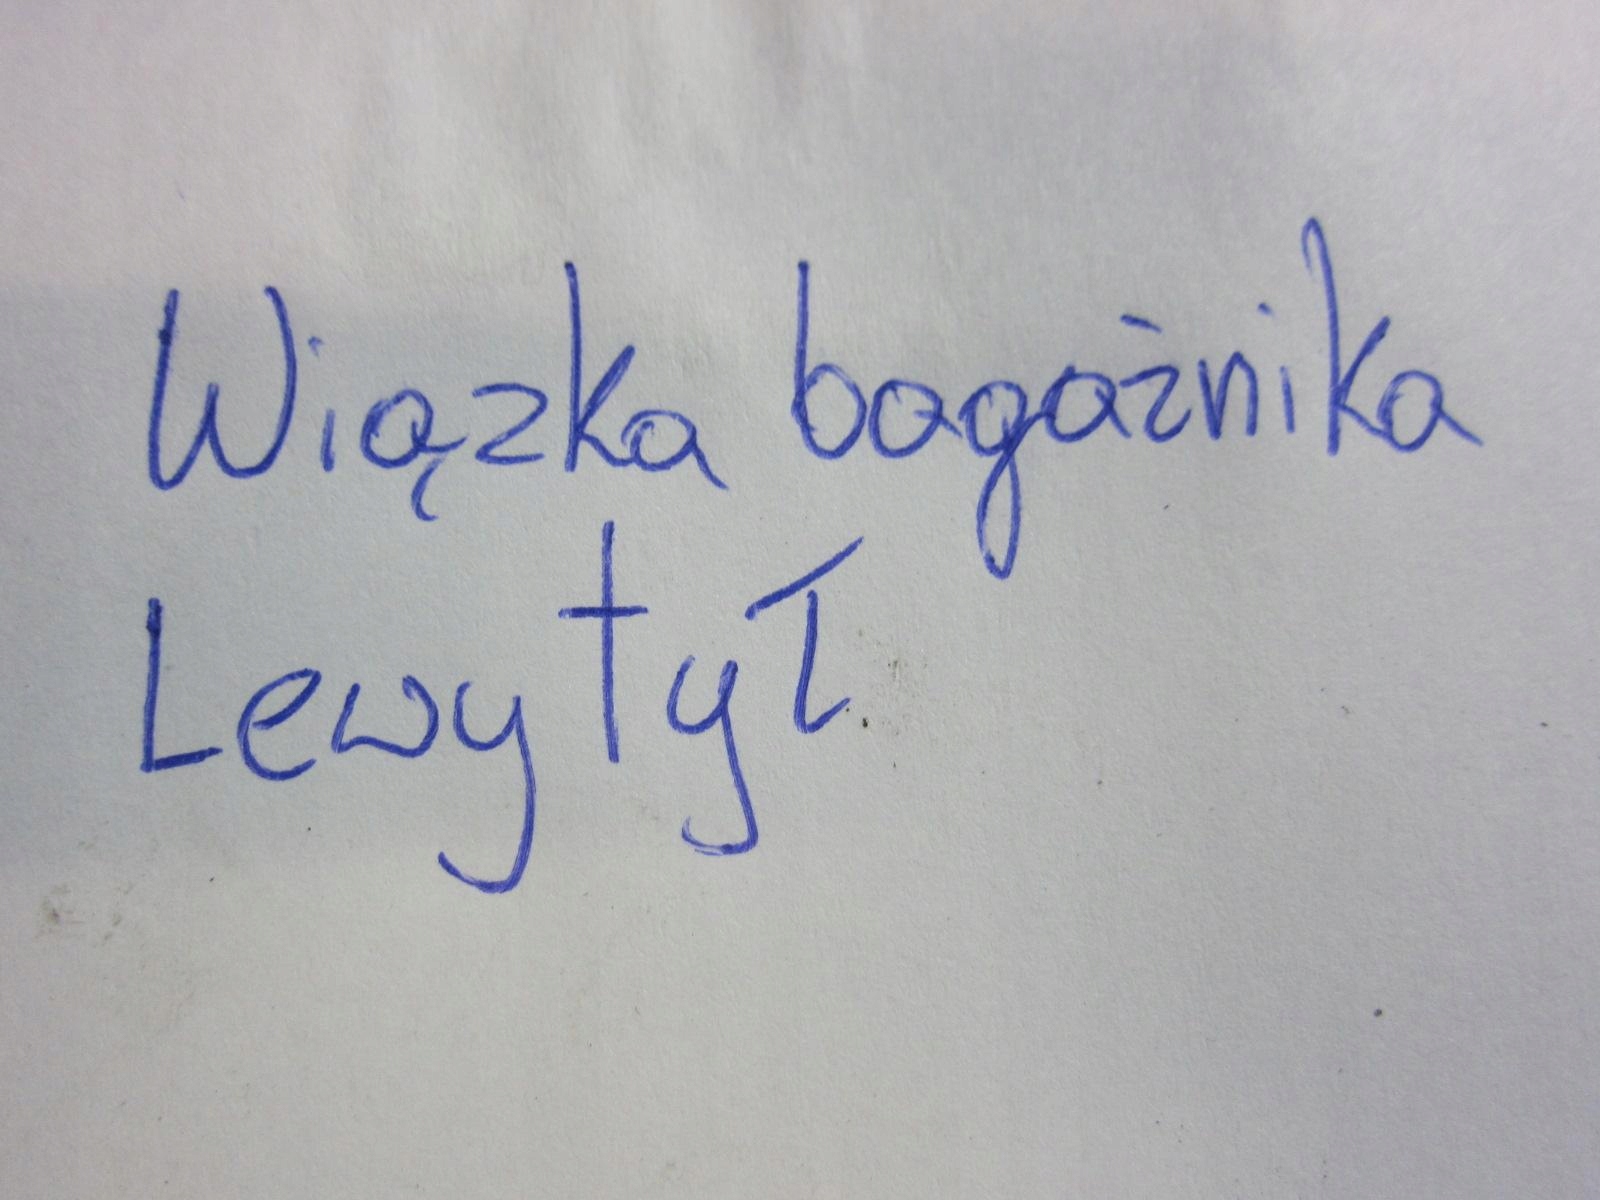 Wiązka bagażnika
Lewy tył